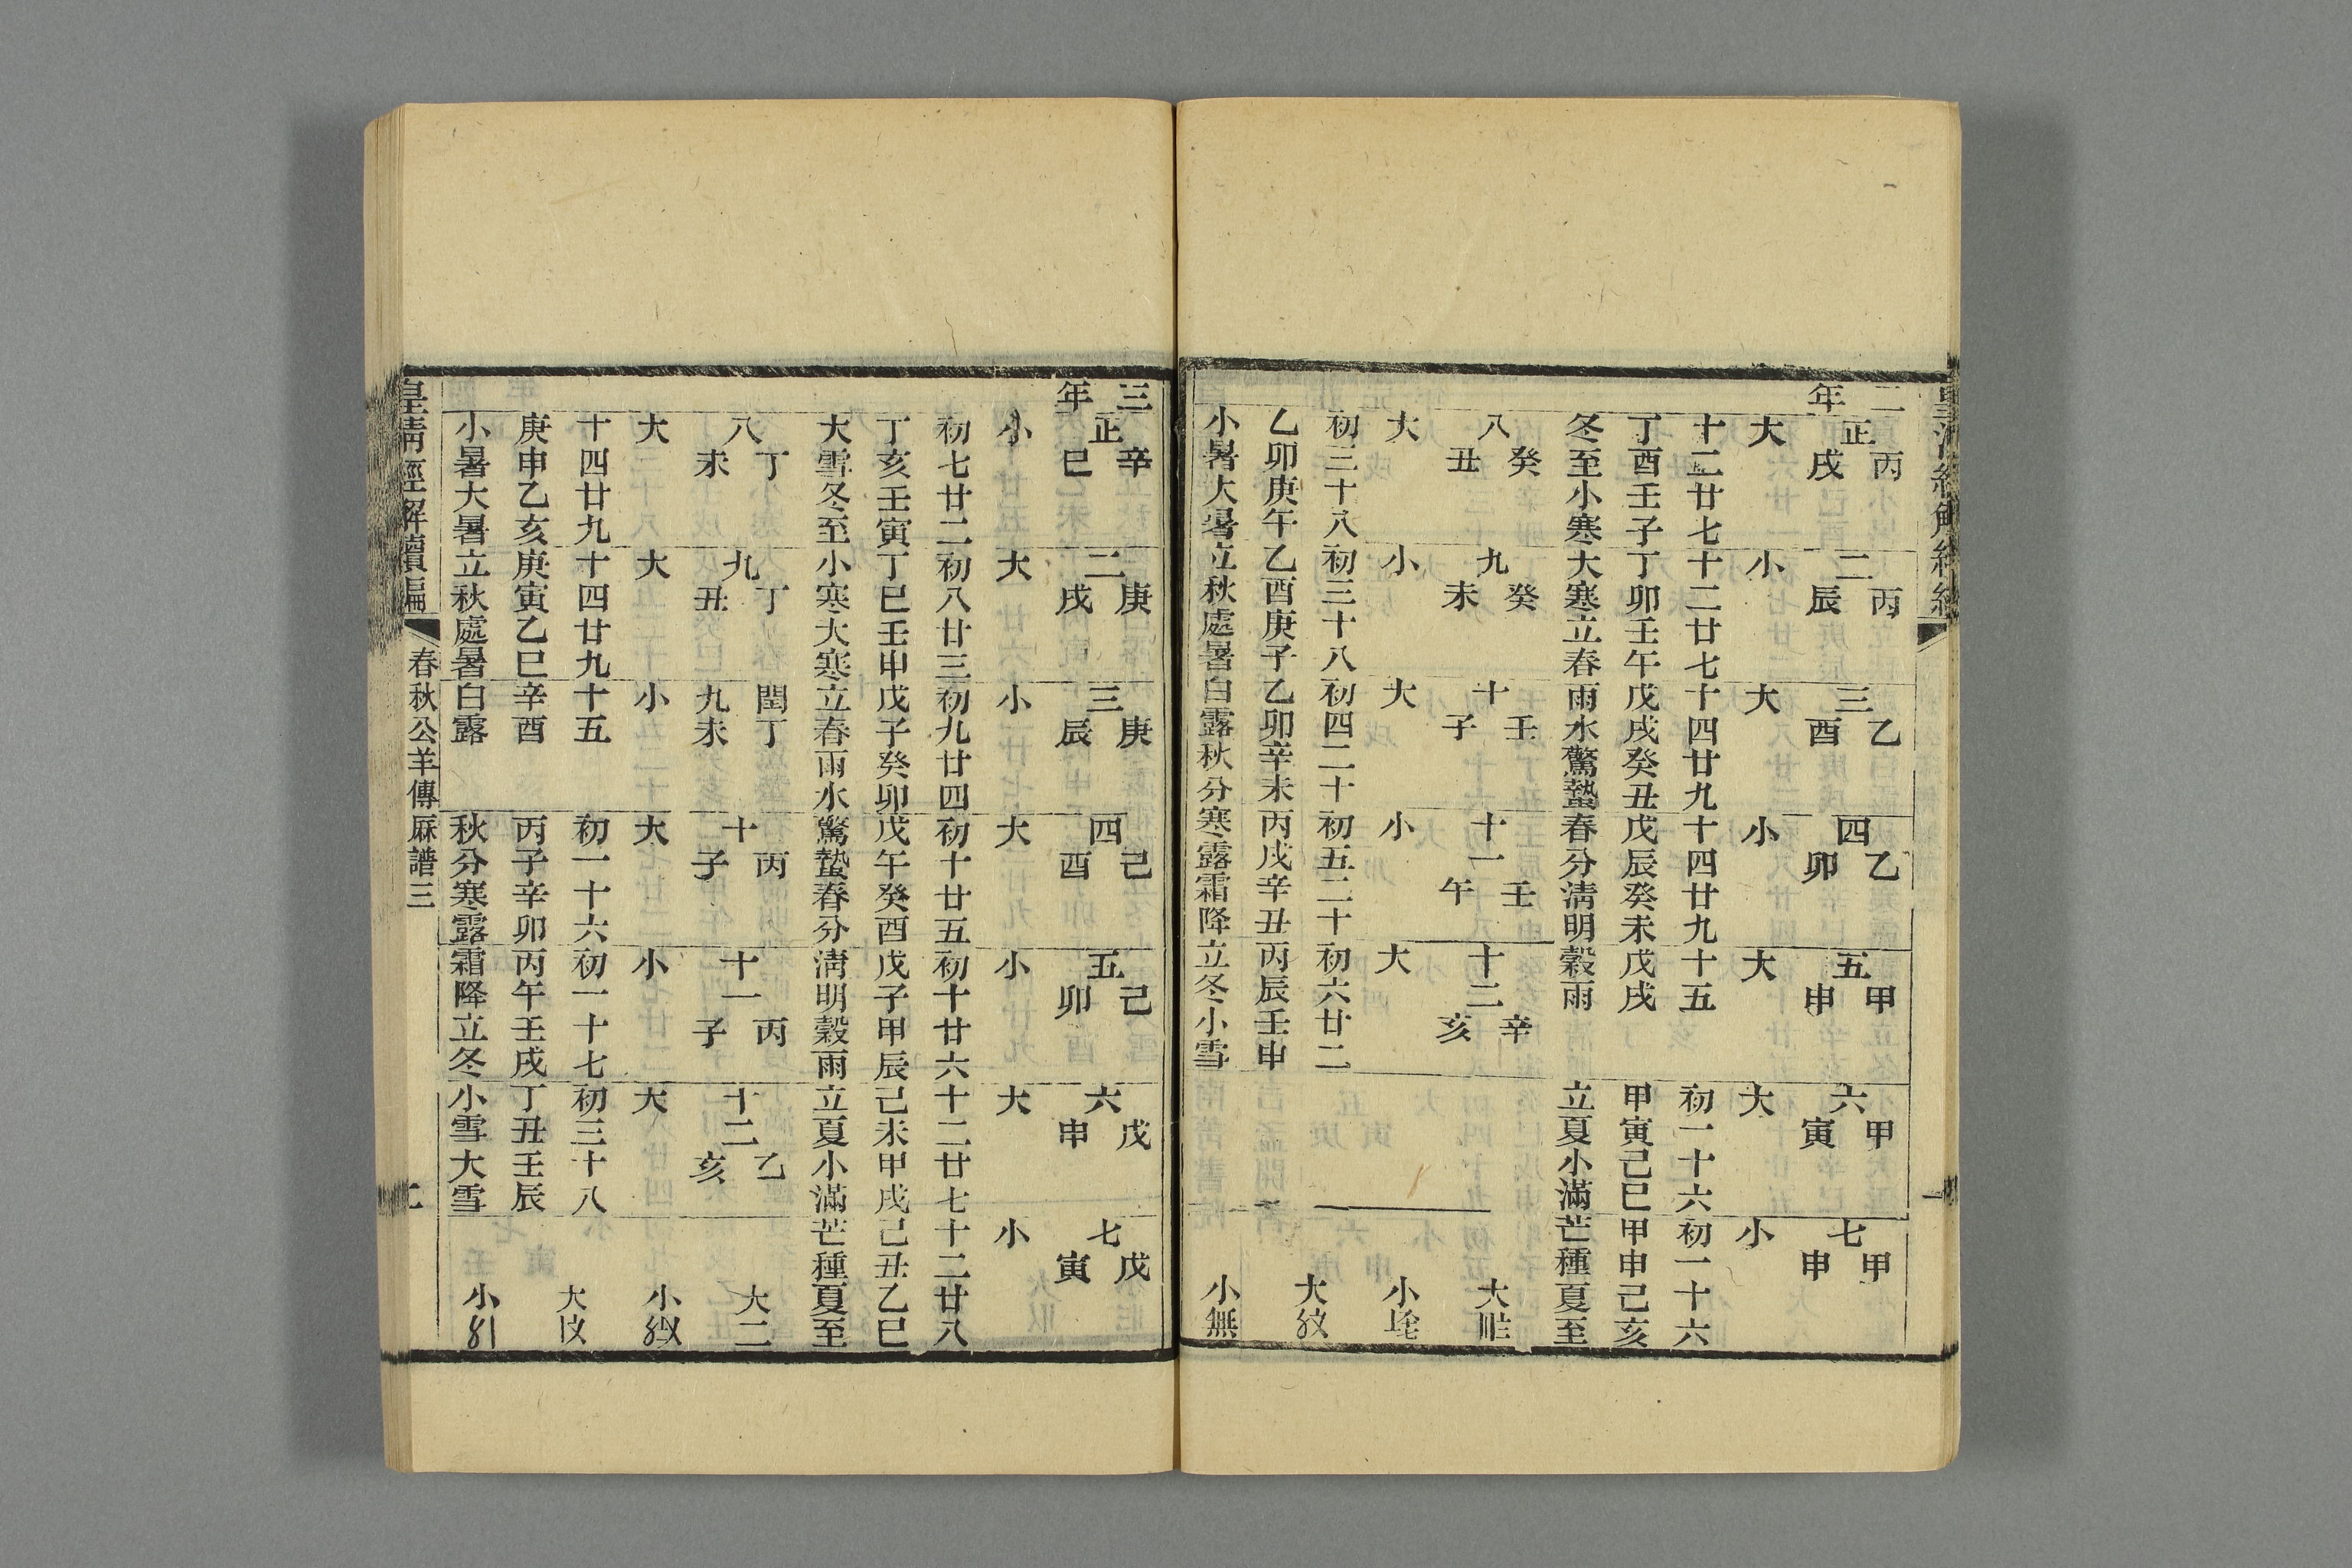 二年 正丙戌 二丙辰 三乙酉 四乙卯 五甲申 六甲寅 七甲申
大 小 大 小 大 大 小
十二廿七 十二廿七 十四廿九 十四廿九 十五 初一十六 初一十六
丁酉壬子 丁卯壬午 戊戌癸丑 戊辰癸未 戊戌 甲寅己巳 甲申己亥
冬至小寒 大寒立春 雨水驚蟄 春分清明 穀雨 立夏小滿 芒種夏至
八癸丑 九癸未 十壬子 十一壬午 十二辛亥 大
大 小 大 小 大 小
初三十八 初三十八 初四二十 初五二十 初六廿二 大
乙卯庚午 乙酉庚子 乙卯辛未 丙戌辛丑 丙辰壬申
小暑大暑 立秋處暑 白露秋分 寒露霜降 立冬小雪 小無
三年 正辛巳 二庚戌 三庚辰 四己酉 五己卯 六戊申 七戊寅
小 大 小 大 小 大 小
初七廿二 初八廿三 初九廿四 初十廿五 初十廿六 十二廿七 十二廿八
丁亥壬寅 丁巳壬申 戊子癸卯 戊午癸酉 戊子甲辰 己未甲戌 己丑乙巳
大雪冬至 小寒大寒 立春雨水 驚蟄春分 清明穀雨 立夏小滿 芒種夏至
八丁未 九丁丑 閏九丁未 十丙子 十一丙子 十二乙亥 大二
大 大 小 大 小 大 小
十四廿九 十四廿九 十五 初一十六 初一十七 初三十八 大
庚申乙亥 庚寅乙巳 辛酉 丙子辛卯 丙午壬戌 丁丑壬辰
小暑大暑 立秋處暑 白露 秋分寒露 霜降立冬 小雪大雪 小
皇清經解續編 春秋公羊傳厤譜三 二